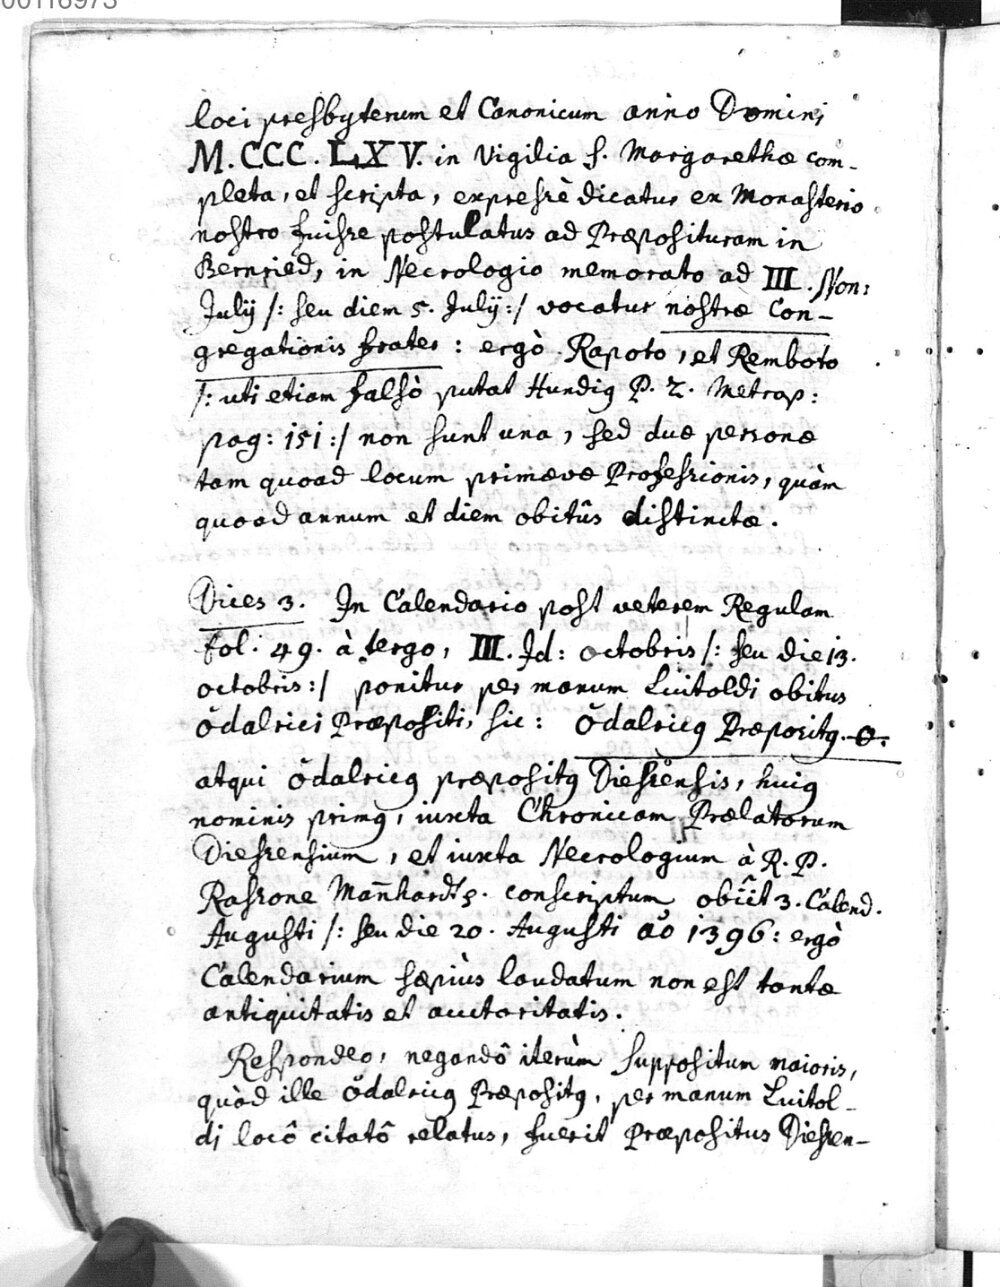 00116973
loci presbyterum et Canonicum anno Domini
M.CCC.LXV. in Vigilia S. Margarethæ com-
pleta, et scripta, expressè dicatur ex Monasterio
nostro fuisse postulatus ad Præposituram in
Bernried, in Necrologio memorato ad III. Non:
Julij /: seu diem 5. Julij :/ vocatur nostræ Con-
gregationis frater : ergò Rapoto, et Remboto
/: uti etiam falsò putat Hundig P. 2. Metrop:
pag: 151 :/ non sunt una, sed duæ personæ
tam quoad locum primævæ Professionis, quàm
quoad annum et diem obitûs distinctæ.
Dices 3. In Calendario post veterem Regulam
fol. 49. à tergo, III. Id: octobris /: seu die 13.
octobris :/ ponitur per manum Luitoldi obitus
Ŏdalrici Præpositi, sic : Ŏdalricꝯ Præpositꝯ. O.
atqui Ŏdalricꝯ præpositꝯ Diessensis, huiꝯ
nominis primꝯ, iuxta Chronicam Prælatorum
Diessensium, et iuxta Necrologium à R. P.
Rassone Mañhardt conscriptum obijt 3. Calend.
Augusti /: seu die 20. Augusti aõ 1396 : ergò
Calendarium sæpiùs laudatum non est tantæ
antiquitatis et auctoritatis.
Respondeo, negandô iterùm suppositum maioris,
quòd ille Ŏdalricꝯ Præpositꝯ, per manum Luitol-
di locô citatô relatus, fuerit Præpositus Diessen-